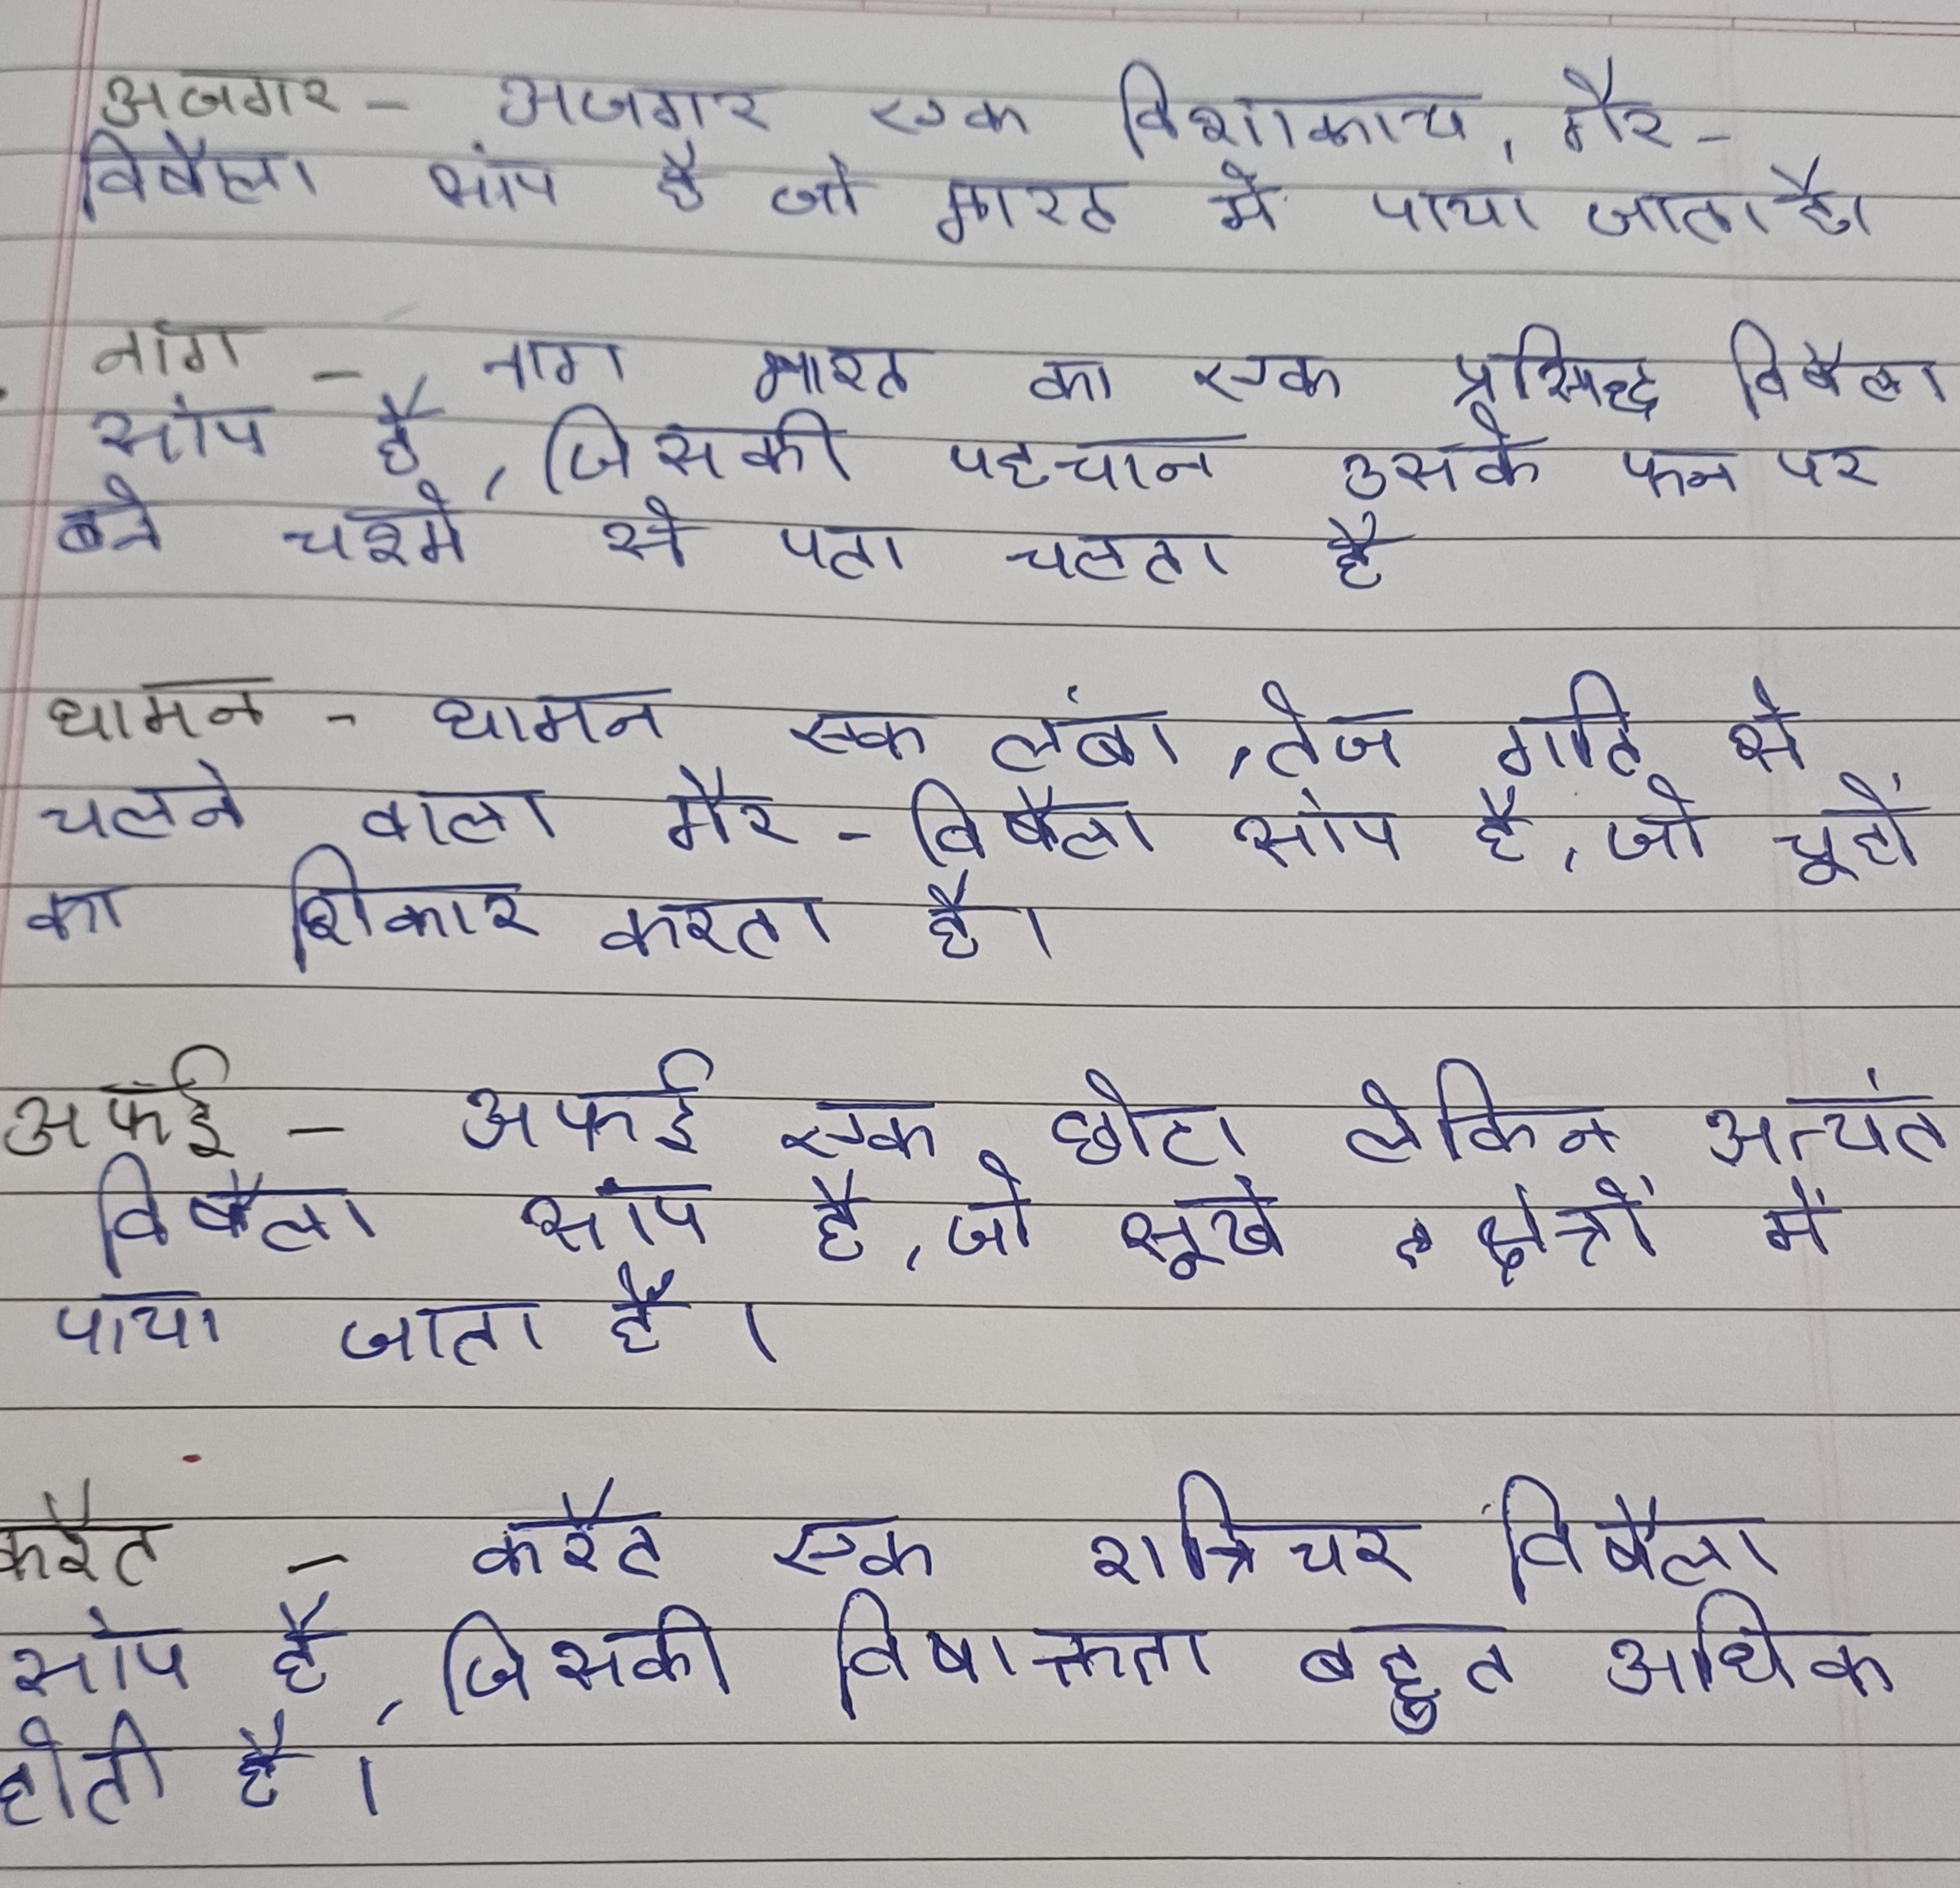 अजगर - अजगर एक विशाकाय, गैर-
विषैला सांप है जो भारत में पाया जाता है।
नाग - नाग भारत का एक प्रसिद्ध विषैला
सांप है, जिसकी पहचान उसके फन पर
बने चश्मे से पता चलता है
धामन - धामन एक लंबा, तेज गति से
चलने वाला गैर-विषैला सांप है, जो चूहों
का शिकार करता है।
अफई - अफई एक छोटा लेकिन अत्यंत
विषैला सांप है, जो सूखे क्षेत्रों में
पाया जाता है।
करैत - करैत एक रात्रिचर विषैला
सांप है, जिसकी विषाक्तता बहुत अधिक
होती है।